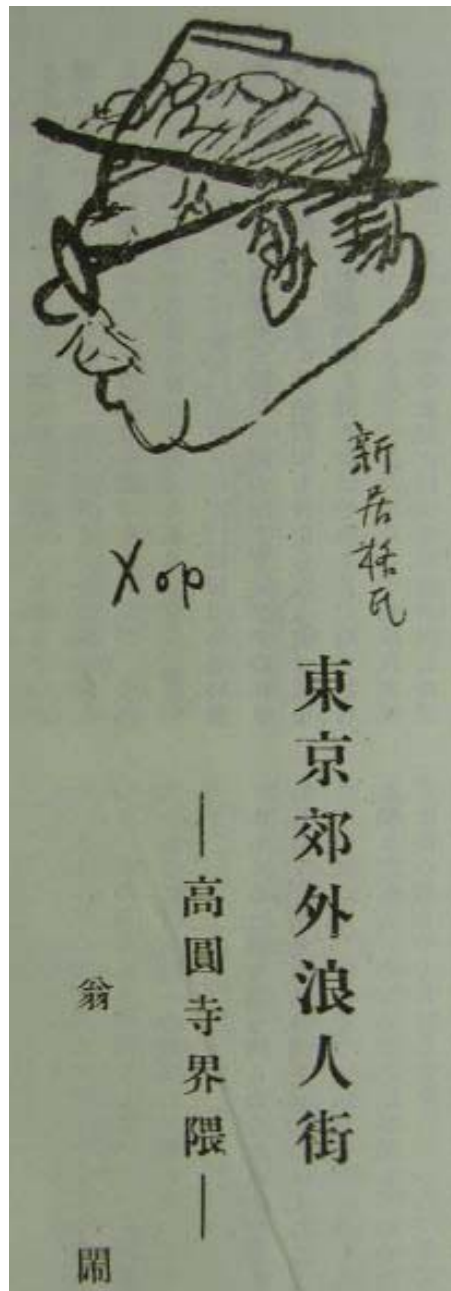 新居格氏
Xop
東京郊外浪人街
―高圓寺界隈―
翁 鬧